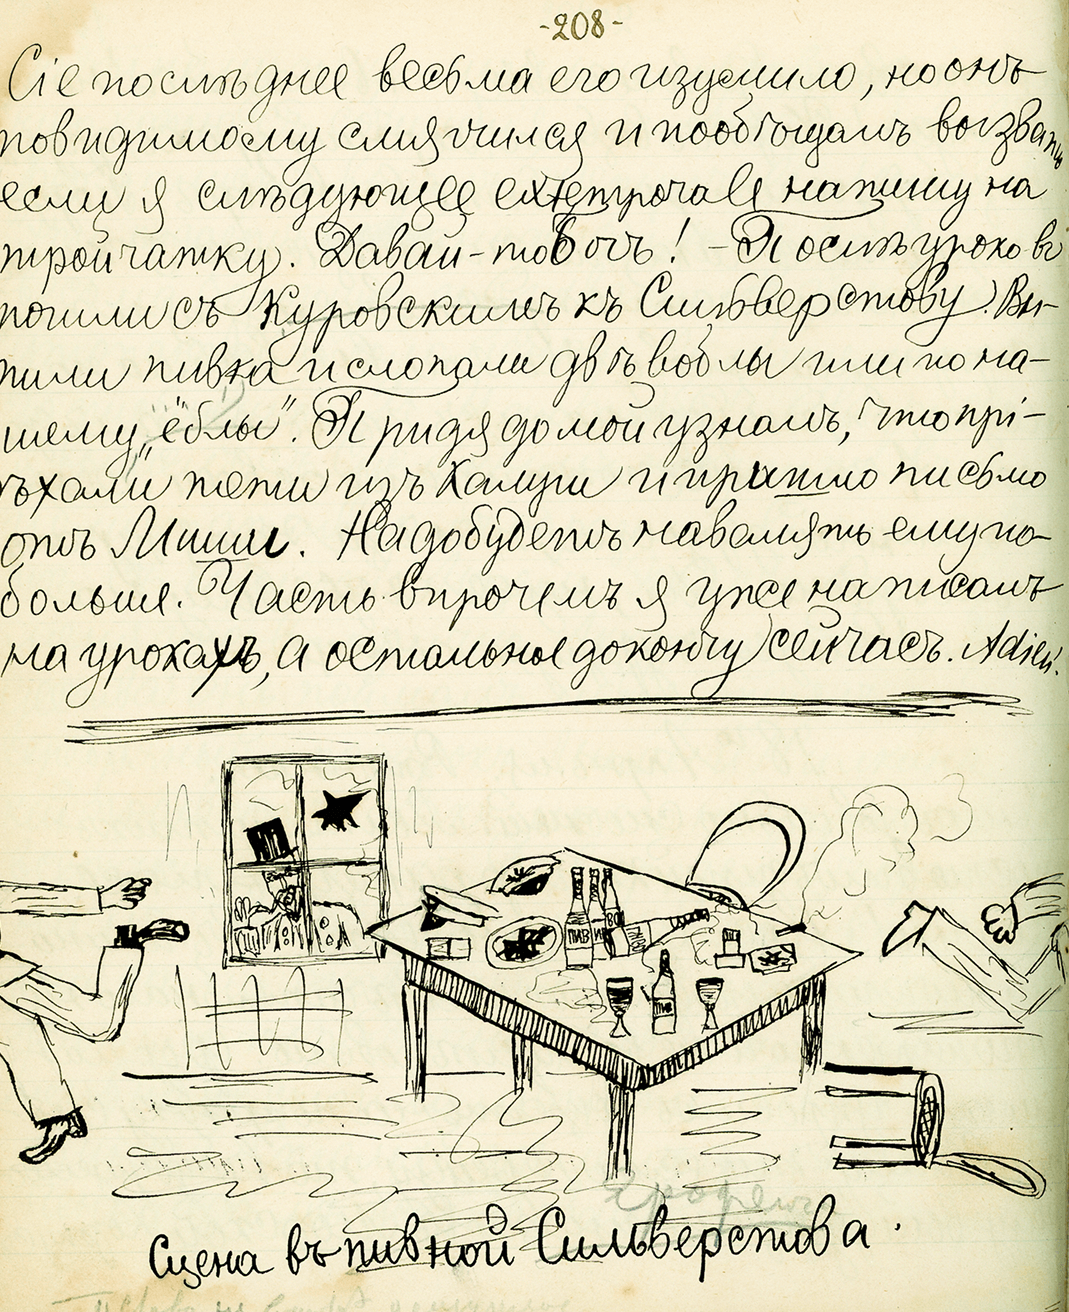 -208-
Сіе послѣднее весьма его изумило, но онъ
повидимому смягчился и пообѣщалъ вызвать
если я слѣдующее extemporale напишу на
тройчатку. Давай-то Богъ! - Послѣ уроковъ
пошли съ Куровскимъ къ Сильверстову. Вы-
пили пивка и слопали двѣ воблы или по на-
шему „ёблы". Придя домой узналъ, что прі-
ѣхали тети изъ Калуги и пришло письмо
отъ Миши. Надо будетъ навалять ему по-
больше. Часть впрочемъ я уже написалъ
на урокахъ, а остальное докончу сейчасъ. Adieu.
ПИВ
ПИВ
Сцена въ пивной Сильверстова.